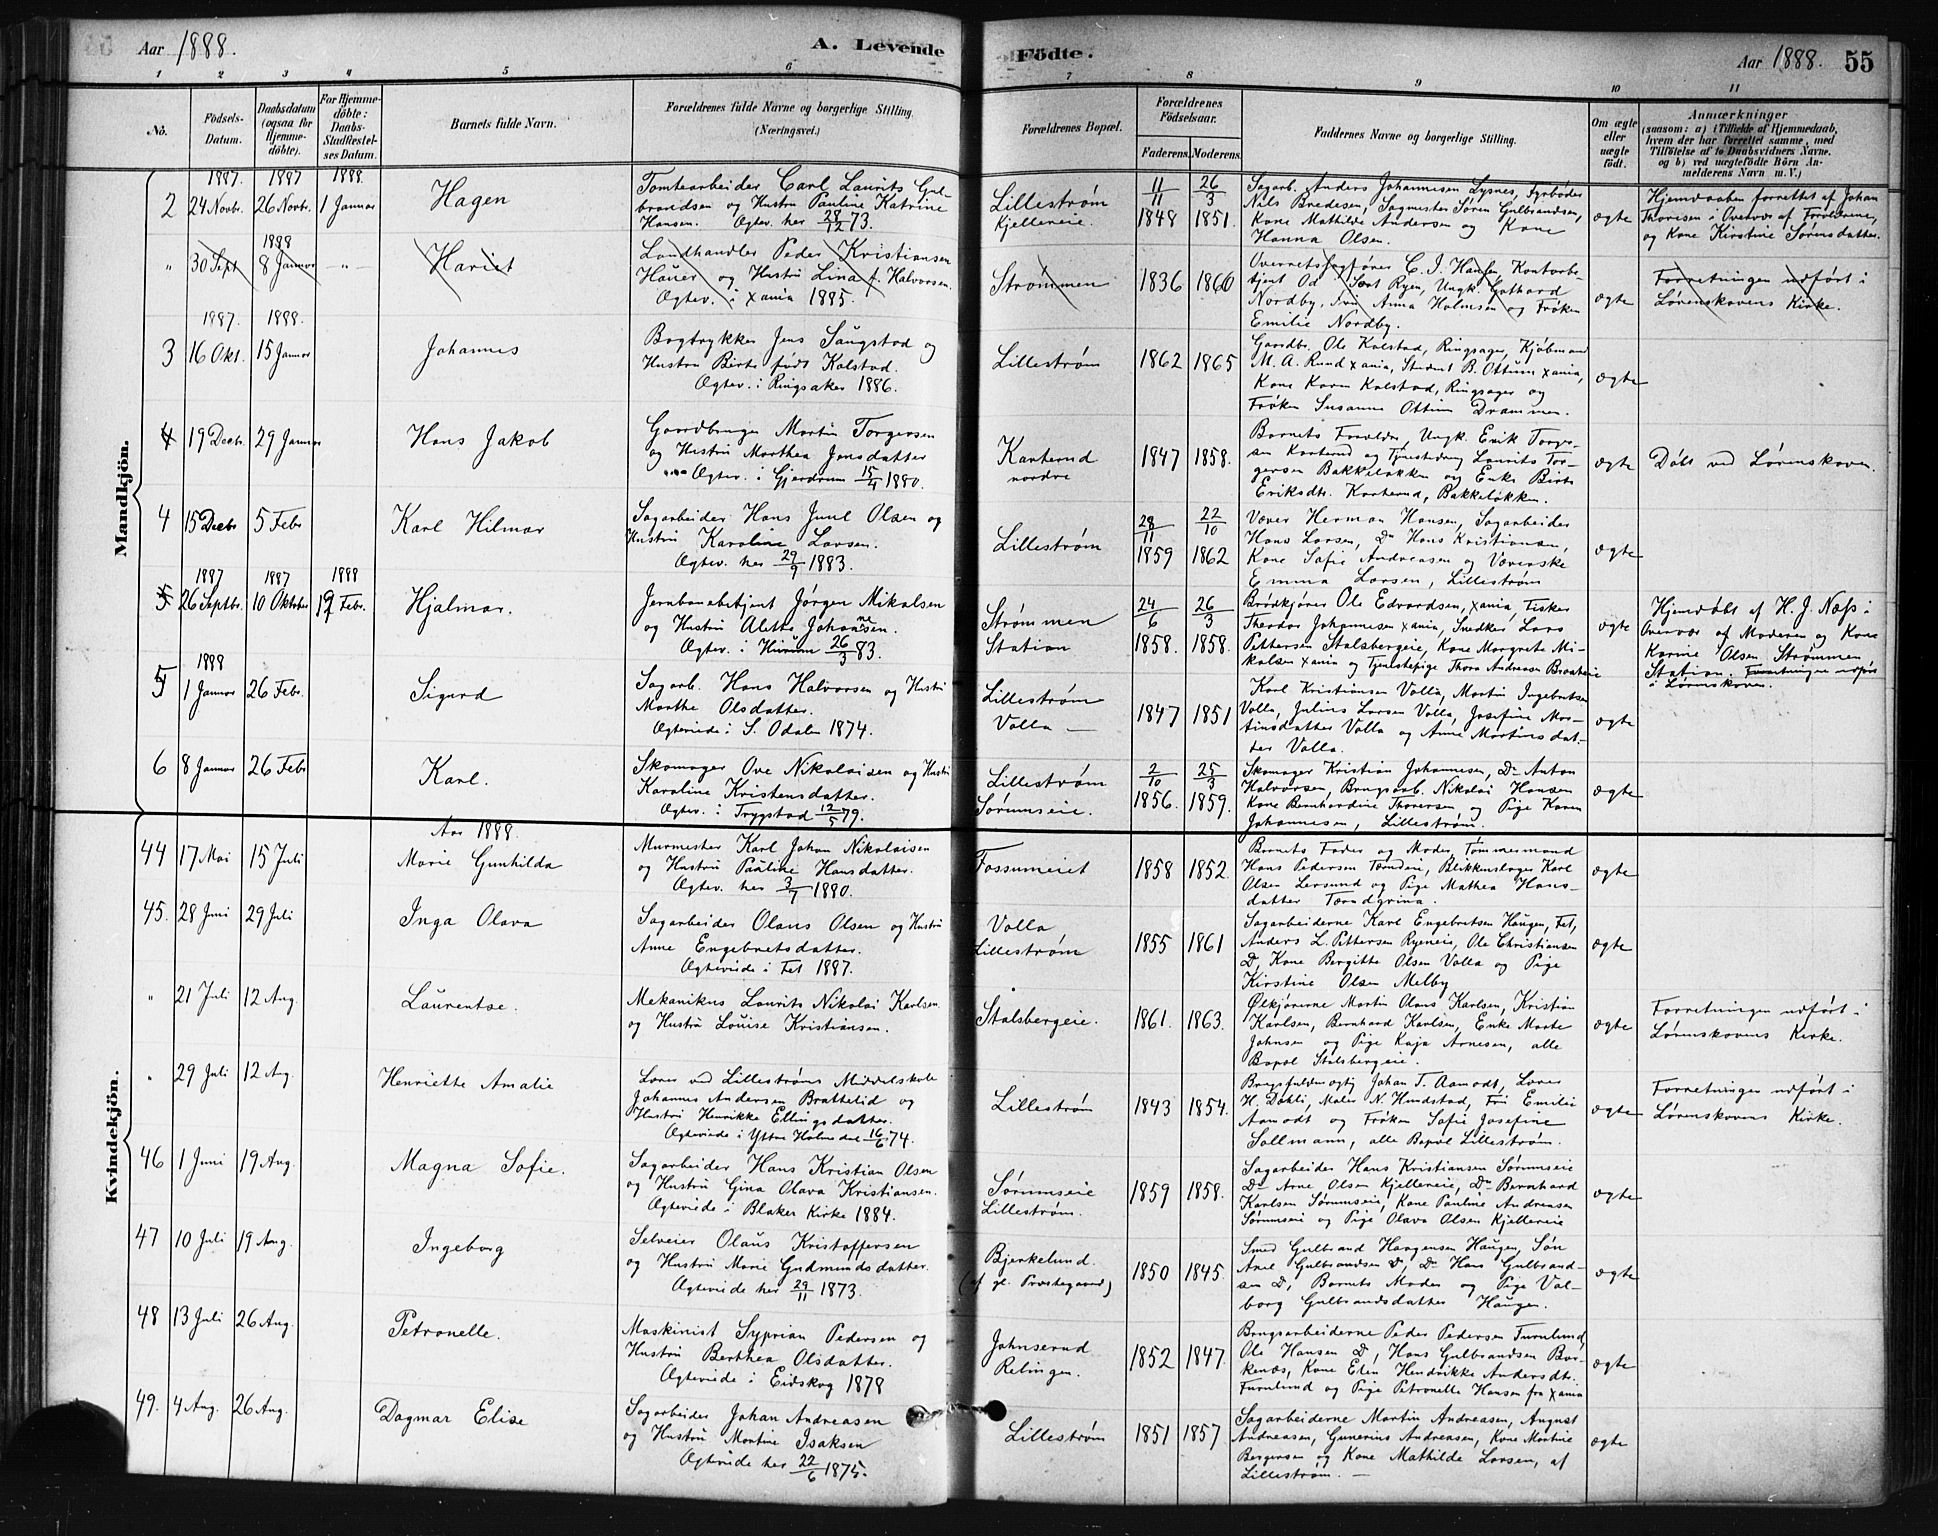 Aar 1888.
A. Levende
Födte.
Aar 1888.
55
1 2 3 4 5 6 7 8 9 10 11
No.
Födsels-
Datum.
Daabsdatum
(ogsaa for
Hjemme-
döbte).
For Hjemme-
döbte:
Daabs-
Stadfæstel-
ses Datum.
Barnets fulde Navn.
Forældrenes fulde Navne og borgerlige Stilling.
(Næringsvei.)
Forældrenes Bopæl.
Forældrenes
Födselsaar.
Faderens. Moderens.
Faddernes Navne og borgerlige Stilling.
Om ægte
eller
uægte
födt.
Anmærkninger
(saasom: a) i Tilfælde af Hjemmedaab,
hvem der har forrettet samme, med
Tilföielse af to Daabsvidners Navne.
og b) ved uægtefödte Börn An-
melderens Navn m. V.)
Mandkjön.
1887. 1887 1888.
2 24 Novbr. 26 Novbr. 1 Januar
Hagen
Tomtearbeider Carl Laurits Gul-
brandsen og Hustru Pauline Katrine
Hansen. Ægtev. her 28/12 73.
Lillestrøm
Kjellereie.
11/11 1848
26/3 1851.
Sagarb. Anders Johannesen Lysnes, Fyrbøder
Nils Bredesen, Sagmester Søren Gulbrandsen,
Kone Mathilde Andersen og Kone
Hanna Olsen.
ægte
Hjemdaaben forrettet af Johan
Thoresen i Overvær af Forældrene,
og Kone Kirstine Sørensdatter.
1888
" 30 Sept 8 Januar - " -
Hariet
Landhandler Peder Kristiansen
Hauer og Hustru Lina f. Halvorsen.
Ægtev. i Xania 1885.
Strømmen
1836 1860
Overretssagfører C. J. Hansen, Kontorbe-
tjent Od Sært Ryen, Ungk. Gothard
Nordby, Fru Anna Holmsen og Frøken
Emilie Nordby.
ægte
Forretningen udført i
Lørenskovens Kirke.
1887. 1888.
3 16 Okt. 15 Januar
Johannes
Bogtrykker Jens Saugstad og
Hustru Birte født Kolstad.
Ægtev. i Ringsaker 1886.
Lillestrøm
1862 1865
Gaardbr. Ole Kolstad, Ringsager, Kjøbmand
M. A. Rund Xania, Student B. Ottum Xania,
Kone Karen Kolstad, Ringsager og
Frøken Susanne Ottum Drammen.
ægte
4 19 Decbr. 29 Januar
Hans Jakob
Gaardbruger Martin Torgersen
og Hustru Marthea Jonsdatter
Ægtev. i Gjerdrum 15/4 1880.
Karterud
nordre
1847 1858.
Barnets Forældre, Ungk. Erik Torger-
sen Karterud og Tjenestedreng Laurits Tor-
gersen Bakkeløkken og Enke Birte
Eriksdtr. Karterud, Bakkeløkken.
ægte
Døbt ved Lørenskoven.
4 15 Decbr 5 Febr
Karl Hilmar
Sagarbeider Hans Juul Olsen og
Hustru Karoline Larsen.
Ægtev. her 29/9 1883.
Lillestrøm
28/11 1859
22/10 1862
Væver Herman Hansen, Sagarbeider
Hans Larsen, Do Hans Kristiansen,
Kone Sofie Andreasen og Væverske
Emma Larsen, Lillestrøm
ægte
1887 1887 1888
5 26 Septbr. 10 Oktober 12 Febr.
Hjalmar.
Jernbanebetjent Jørgen Mikalsen
og Hustru Alette Johannesen.
Ægtev. i Hurum 26/3 83.
Strømmen
Station
24/6 1858.
26/3 1858.
Brødkjører Ole Edvardsen, Xania, Fisker
Theodor Johannesen Xania, Snedker Lars
Pettersen Stalsbergeie, Kone Margrete Mi-
kalsen Xania og Tjenestepige Thora Andreasen Braateeie
ægte
Hjemdøbt af H. J. Næss i
Overvær af Moderen og Kone
Karine Olsen Strømmen
Station. Forretningen udført
i Lørenskoven.
1888
5 1 Januar 26 Febr.
Sigurd
Sagarb. Hans Halvorsen og Hustru
Marthe Olsdatter.
Ægteviede i S. Odalen 1874.
Lillestrøm
Volla —
1847 1851
Karl Kristiansen Volla, Martin Ingebretsen
Volla, Julius Larsen Volla, Josefine Mar-
tinsdatter Volla og Anne Martinsdat-
ter Volla.
ægte
6 8 Januar 26 Febr
Karl.
Skomager Ove Nikolaisen og Hustru
Karoline Kristensdatter.
Ægtev. i Trygstad 12/5 79.
Lillestrøm
Sørumseie.
2/10 1856.
25/3 1859.
Skomager Kristian Johannesen, Do Anton
Halvorsen, Brugsarb. Nikolai Hansen
Kone Bernhardine Thoresen og Pige Karen
Johannesen, Lillestrøm.
ægte
Kvindekjön.
Aar 1888.
44 17 Mai 15 Juli
Marie Gunhilda
Murmester Karl Johan Nikolaisen
og Hustru Pauline Hansdatter.
Ægtev. her 3/7 1880.
Fossumeiet
1858 1852.
Barnets Fader og Moder, Tømmermand
Hans Pedersen Tærudeie, Blikkenslager Karl
Olsen Lersund og Pige Mathea Hans-
datter Tærudgrina.
ægte
45. 28 Juni 29 Juli
Inga Olava
Sagarbeider Olaus Olsen og Hustru
Anne Engebretsdatter.
Ægteviede i Fet 1887.
Volla
Lillestrøm
1855 1861
Sagarbeiderne Karl Engebretsen Haugen, Fet,
Anders L. Pettersen Ryeneie, Ole Christiansen
Do, Kone Bergitte Olsen Volla og Pige
Kirstine Olsen Melby
ægte
" 21 Juli 12 Aug.
Laurentse.
Mekanikus Laurits Nikolai Karlsen
og Hustru Louise Kristiansen.
Stalsbergeie.
1861. 1863.
Ølkjørerne Martin Olaus Karlsen, Kristian
Karlsen, Bernhard Karlsen, Enke Marte
Johnsen og Pige Kaja Arnesen, alle
Bopæl Stalsbergeie.
ægte
Forretningen udført i
Lørenskovens Kirke.
" 29 Juli 12 Aug.
Henriette Amalie
Lærer ved Lillestrøms Middelskole
Johannes Andersen Brattelid og
Hustru Henrikke Ellingsdatter.
Ægteviede i Yttre Holmedal 16/6 74.
Lillestrøm
1843 1854.
Brugsfuldmægtig Johan T. Aamodt, Lærer
H. Dahli, Maler N. Hundstad, Fru Emilie
Aamodt og Frøken Sofie Josefine
Sollmann, alle Bopæl Lillestrøm.
ægte
Forretningen udført i
Lørenskovens Kirke.
46 1 Juni 19 Aug.
Magna Sofie.
Sagarbeider Hans Kristian Olsen
og Hustru Gina Olava Kristiansen.
Ægteviede i Blaker Kirke 1884.
Sørumseie
Lillestrøm.
1859 1858.
Sagarbeider Hans Kristiansen Sørumseie
Do Arne Olsen Kjellereie, Do Bernhard
Karlsen Sørumseie, Kone Pauline Andreasen
Sørumseie og Pige Olava Olsen Kjellereie
ægte
47 10 Juli 19 Aug.
Ingeborg
Selveier Olaus Kristoffersen
og Hustru Marie Gudmundsdatter.
Ægteviede her 29/11 1873.
Bjerkelund.
(af gl. Præstegaard)
1850 1845.
Smed Gulbrand Haagensen Haugen, Søn
Axel Gulbrandsen Do, Do Hans Gulbrand-
sen Do, Barnets Moder og Pige Val-
borg Gulbrandsdatter Haugen.
ægte
48 13 Juli 26 Aug.
Petronelle.
Maskinist Syprian Pedersen og
Hustru Berthea Olsdatter.
Ægteviede i Eidskog 1878
Johnserud
Relingen.
1852 1847.
Brugsarbeiderne Peder Pedersen Furulund
Ole Hansen Do, Hans Gulbrandsen Bær-
kenæs, Kone Elen Hendrikke Andersdtr.
Furulund og Pige Petronelle Hansen fra Xania
ægte
49. 4 Aug. 26 Aug.
Dagmar Elise
Sagarbeider Johan Andreasen
og Hustru Martine Isaksen
Ægteviede her 22/6 1875.
Lillestrøm
1851 1857
Sagarbeiderne Martin Andreasen, August
Andreasen, Gunerius Andreasen, Kone Martine
Bergersen og Kone Mathilde Larsen, af
Lillestrøm. —
ægte